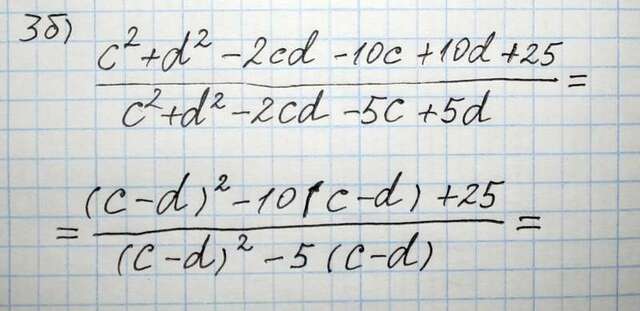 3б)
c² + d² - 2cd - 10c + 10d + 25
c² + d² - 2cd - 5c + 5d
=
= (c - d)² - 10(c - d) + 25
(c - d)² - 5(c - d)
=